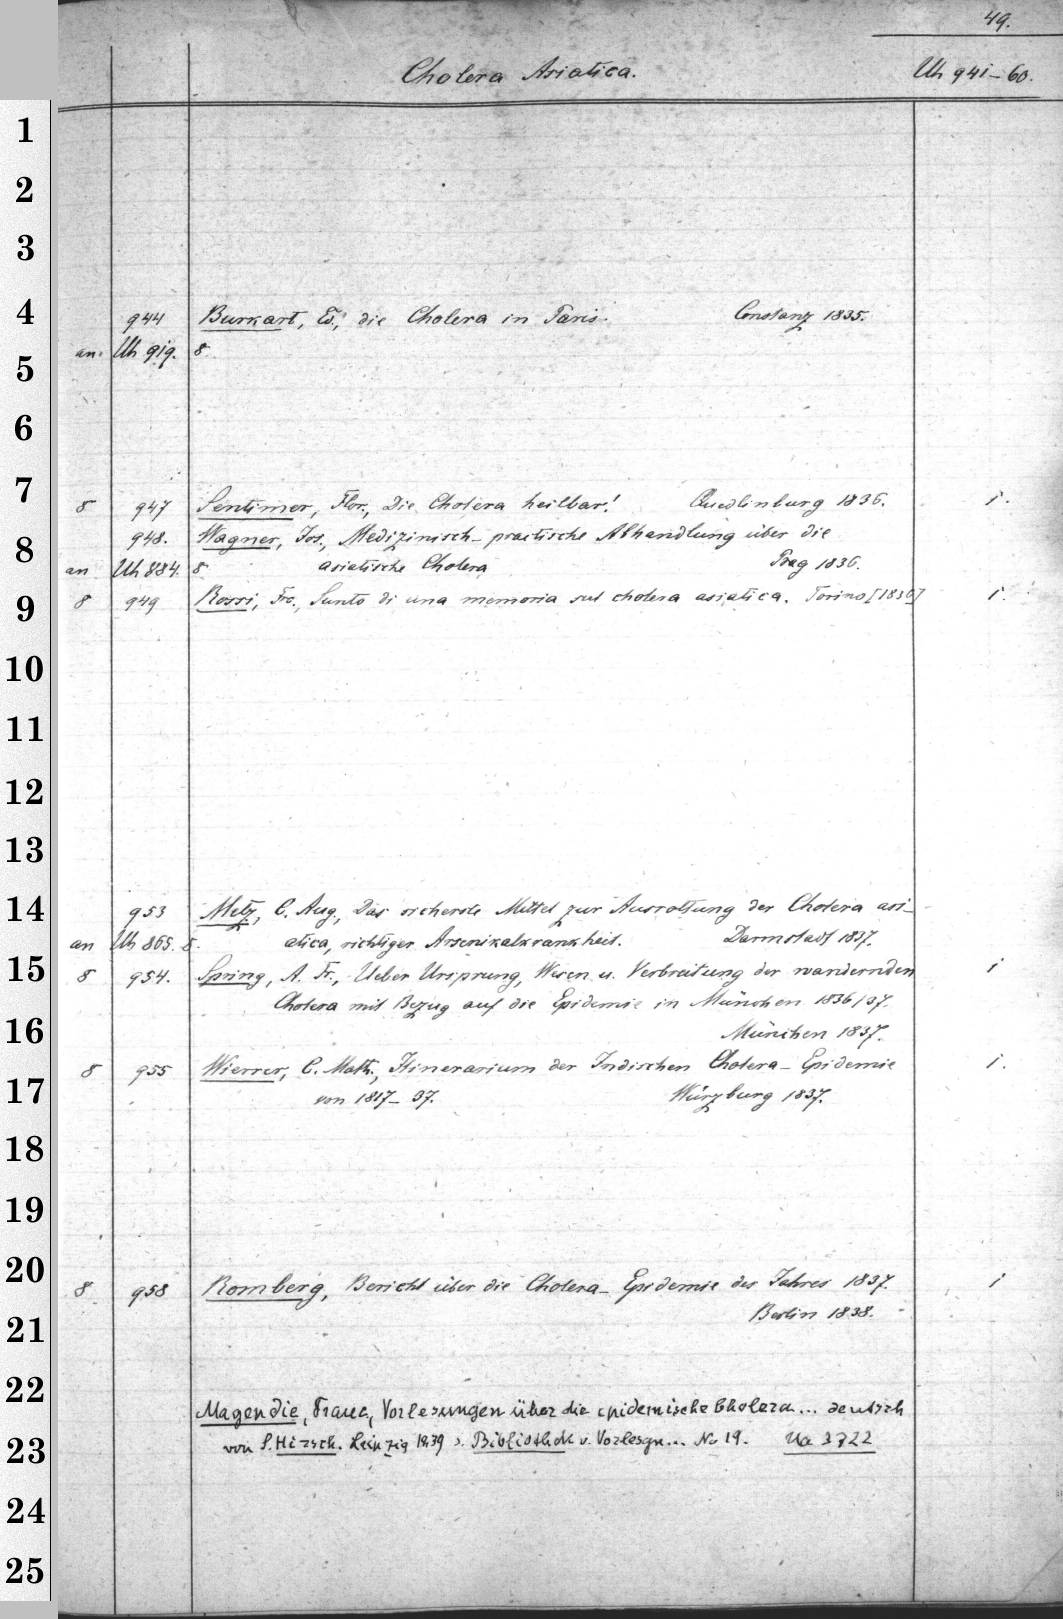 49.
Cholera Asiatica. Uh 941-60.
1
2
3
4 944 Burkart, Ed., die Cholera in Paris. Constanz 1835.
an Uh 919. 8
5
6
7 8 947 Sentimer, Flor., Die Cholera heilbar! Quedlinburg 1836. i.
948. Wagner, Jos., Medizinisch-practische Abhandlung über die
8 an Uh 884. 8 asiatische Cholera Prag 1836.
9 8 949 Rossi, Frc., Sunto di una memoria sul cholera asiatica. Torino [1836] i.
10
11
12
13
14 953 Metz, C. Aug., Das sicherste Mittel zur Ausrottung der Cholera asi-
an Uh 865. 8. atica, richtiger Arsenikalkrankheit. Darmstadt 1837.
15 8 954. Spring, A. Fr., Ueber Ursprung, Wesen u. Verbreitung der wandernden i
Cholera mit Bezug auf die Epidemie in München 1836/37.
16 München 1837.
8 955 Wierrer, C. Math., Itinerarium der Indischen Cholera-Epidemie i.
17 von 1817-37. Würzburg 1837.
18
19
20 8 958 Romberg, Bericht über die Cholera-Epidemie des Jahres 1837. i
21 Berlin 1838.
22 Magendie, Vorlesungen über die epidemische Cholera... deutsch
23 von S. Hirsch. Leipzig 1839 s. Bibliothek v. Vorlesgn... No 19. Ua 3722
24
25